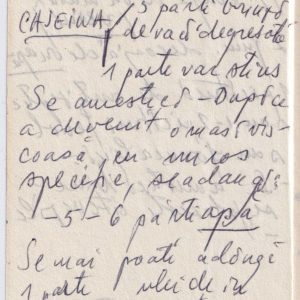 CASEINA / 5 părți brînză
de vaci degresată
1 parte var stins
Se amestecă – După ce
a devenit o masă vîs-
coasă, cu miros
specific, se adaugă:
– 5 – 6 părți apă
Se mai poate adăuga
1 parte ulei de in